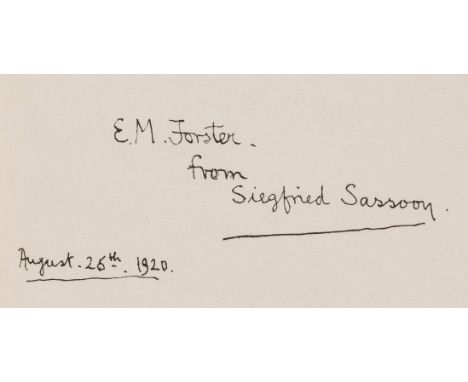 E.M. Forster.
from
Siegfried Sassoon.
August. 25th. 1920.